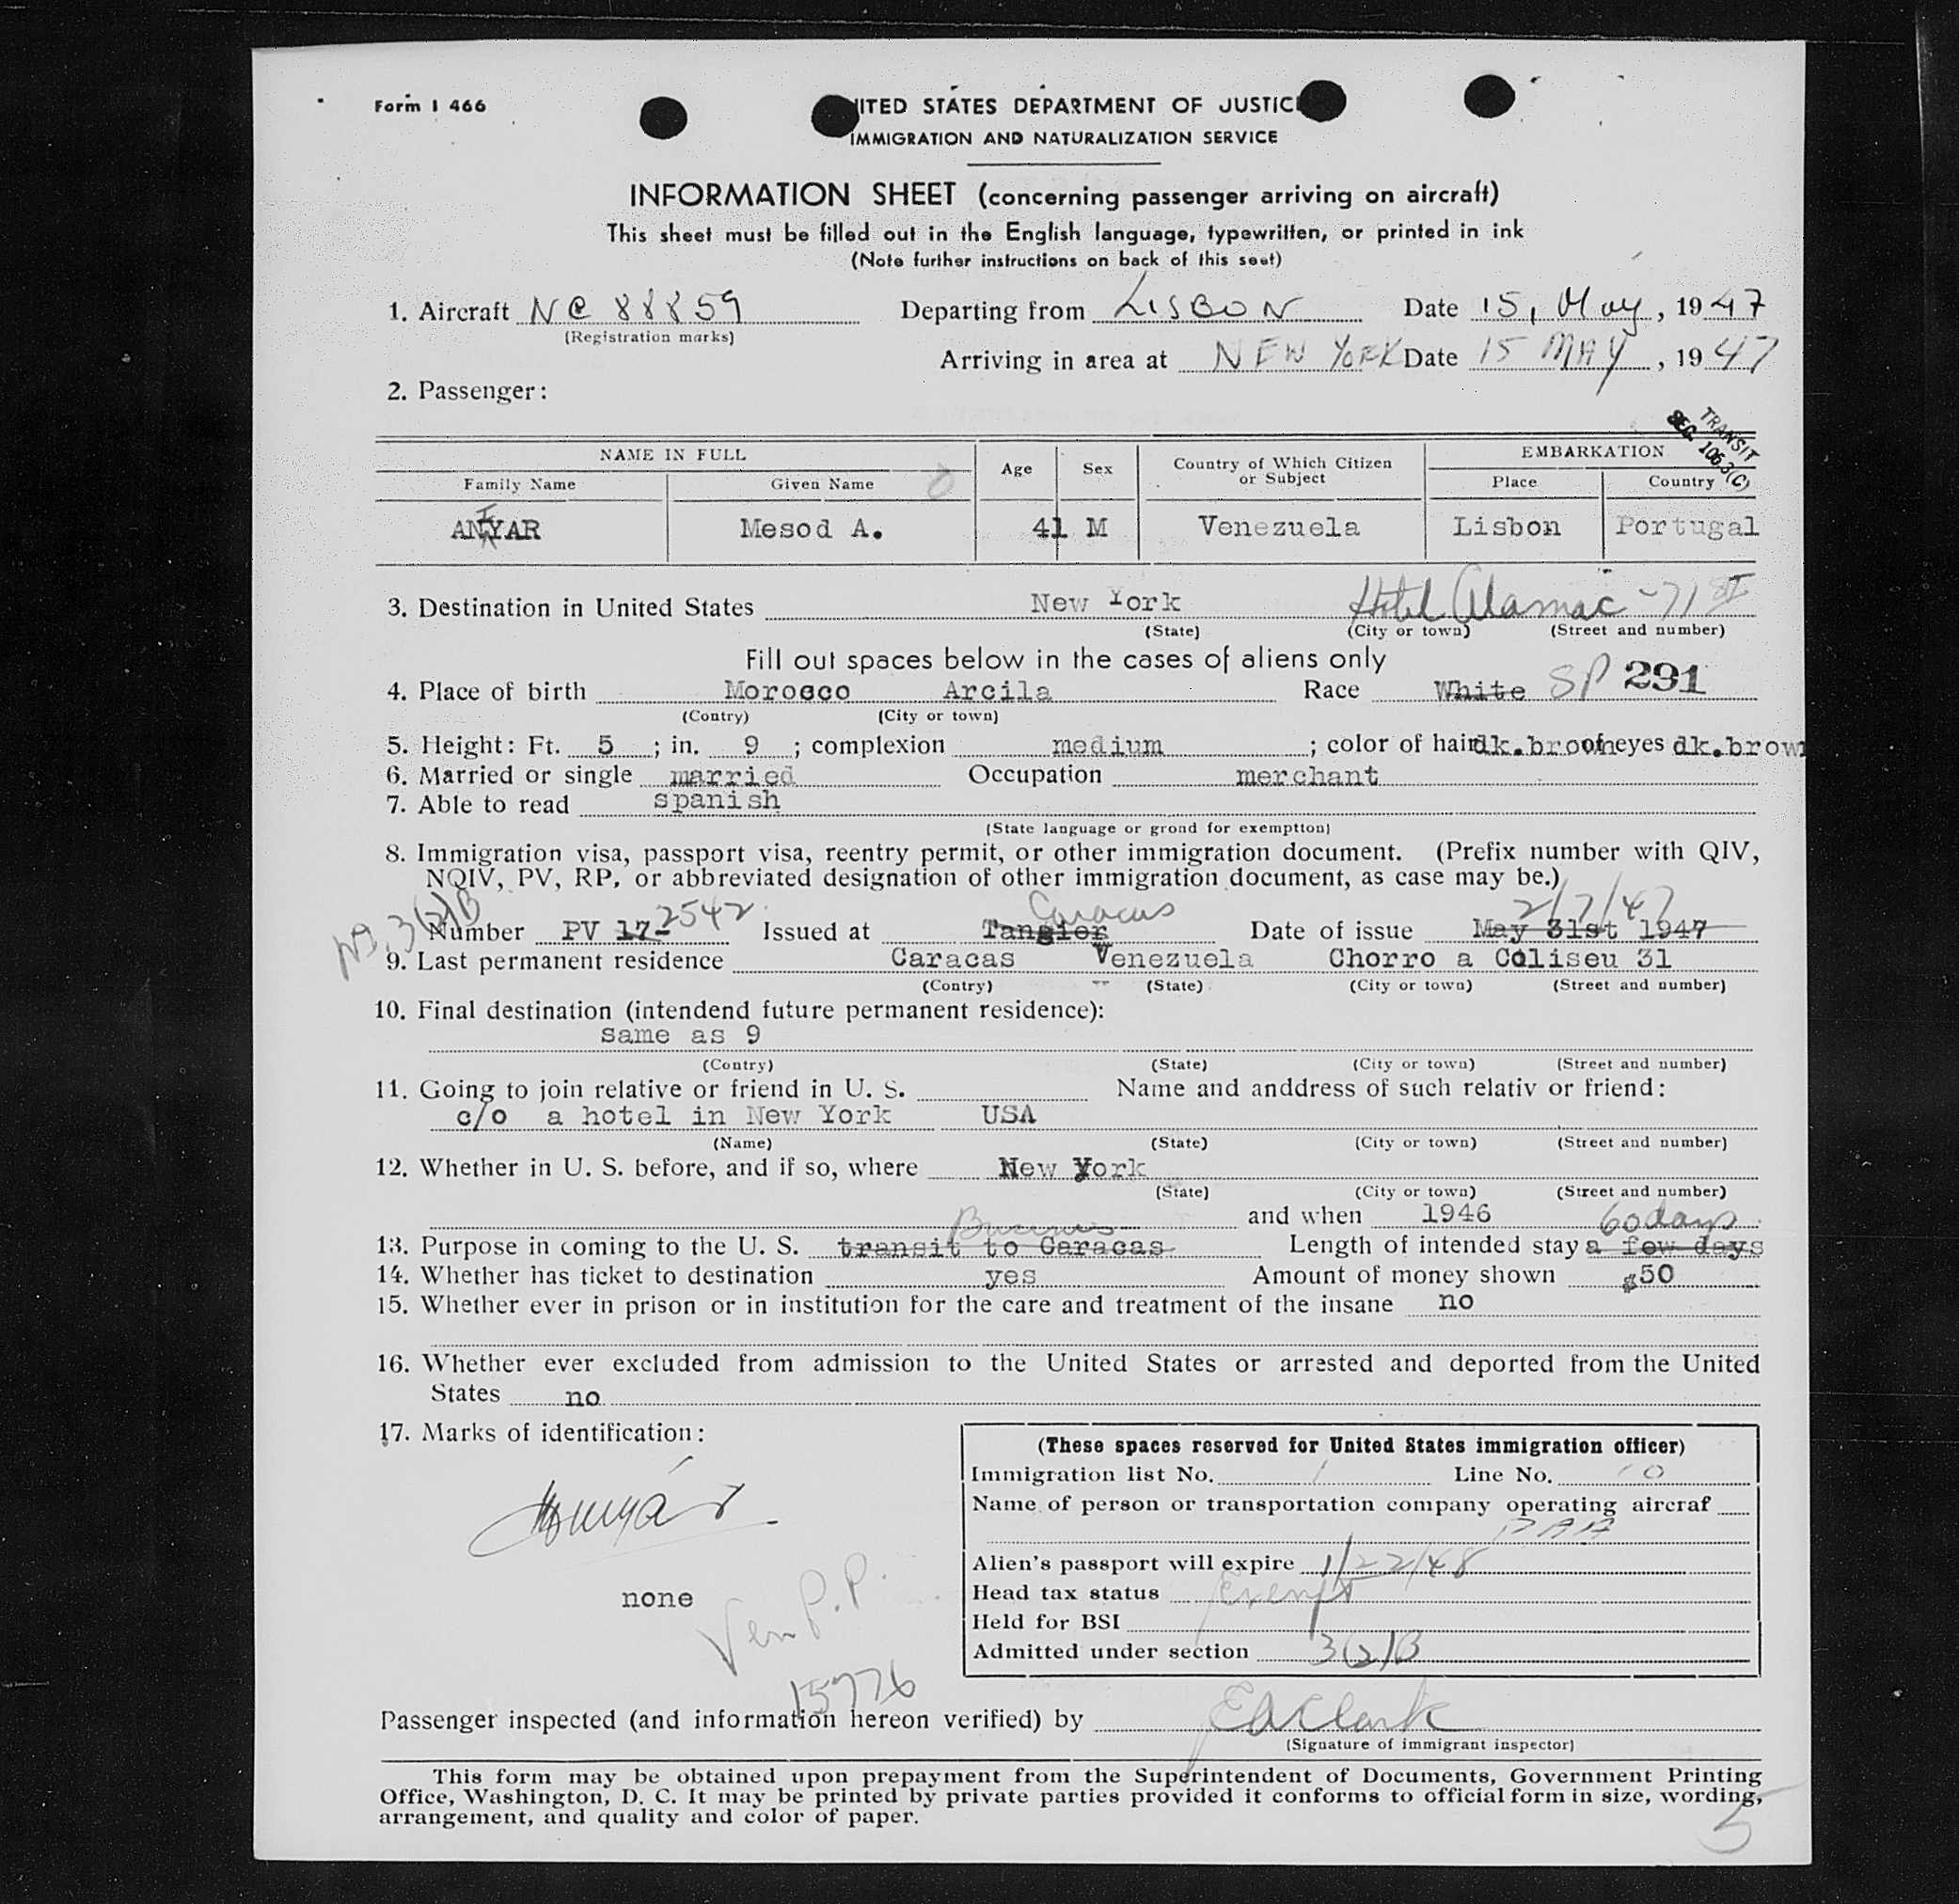 Form I 466
UNITED STATES DEPARTMENT OF JUSTICE
IMMIGRATION AND NATURALIZATION SERVICE
INFORMATION SHEET (concerning passenger arriving on aircraft)
This sheet must be filled out in the English language, typewritten, or printed in ink
(Note further instructions on back of this seet)
1. Aircraft NC 88859 Departing from LISBON Date 15, May, 1947
(Registration marks)
Arriving in area at NEW YORK Date 15 MAY, 1947
2. Passenger:
TRANSIT
SEC. 105.3(C)
NAME IN FULL Age Sex Country of Which Citizen or Subject EMBARKATION
Family Name Given Name Place Country
ANYAR Mesod A. 41 M Venezuela Lisbon Portugal
3. Destination in United States New York Hotel Alamac - 71 ST
(State) (City or town) (Street and number)
Fill out spaces below in the cases of aliens only
4. Place of birth Morocco Arcila Race White SP 291
(Contry) (City or town)
5. Height: Ft. 5 ; in. 9 ; complexion medium ; color of hair dk.brown of eyes dk.brown
6. Married or single married Occupation merchant
7. Able to read spanish
(State language or grond for exemption)
8. Immigration visa, passport visa, reentry permit, or other immigration document. (Prefix number with QIV,
NQIV, PV, RP, or abbreviated designation of other immigration document, as case may be.)
3(2)B
Caracas 2/7/47
Number PV 17-2542 Issued at Tangier Date of issue May 31st 1947
9. Last permanent residence Caracas Venezuela Chorro a Coliseu 31
(Contry) (State) (City or town) (Street and number)
10. Final destination (intendend future permanent residence):
same as 9
(Contry) (State) (City or town) (Street and number)
11. Going to join relative or friend in U. S. Name and anddress of such relativ or friend:
c/o a hotel in New York USA
(Name) (State) (City or town) (Street and number)
12. Whether in U. S. before, and if so, where New York
(State) (City or town) (Street and number)
and when 1946
Business 60 days
13. Purpose in coming to the U. S. transit to Caracas Length of intended stay a few days
14. Whether has ticket to destination yes Amount of money shown $50
15. Whether ever in prison or in institution for the care and treatment of the insane no
16. Whether ever excluded from admission to the United States or arrested and deported from the United
States no
17. Marks of identification:
none
Ven P.P.
15776
(These spaces reserved for United States immigration officer)
Immigration list No. 1 Line No. 10
Name of person or transportation company operating aircraf
PAA
Alien's passport will expire 1/22/48
Head tax status Exempt
Held for BSI
Admitted under section 3(2)B
Passenger inspected (and information hereon verified) by E A Clark
(Signature of immigrant inspector)
This form may be obtained upon prepayment from the Superintendent of Documents, Government Printing
Office, Washington, D. C. It may be printed by private parties provided it conforms to official form in size, wording,
arrangement, and quality and color of paper.
5